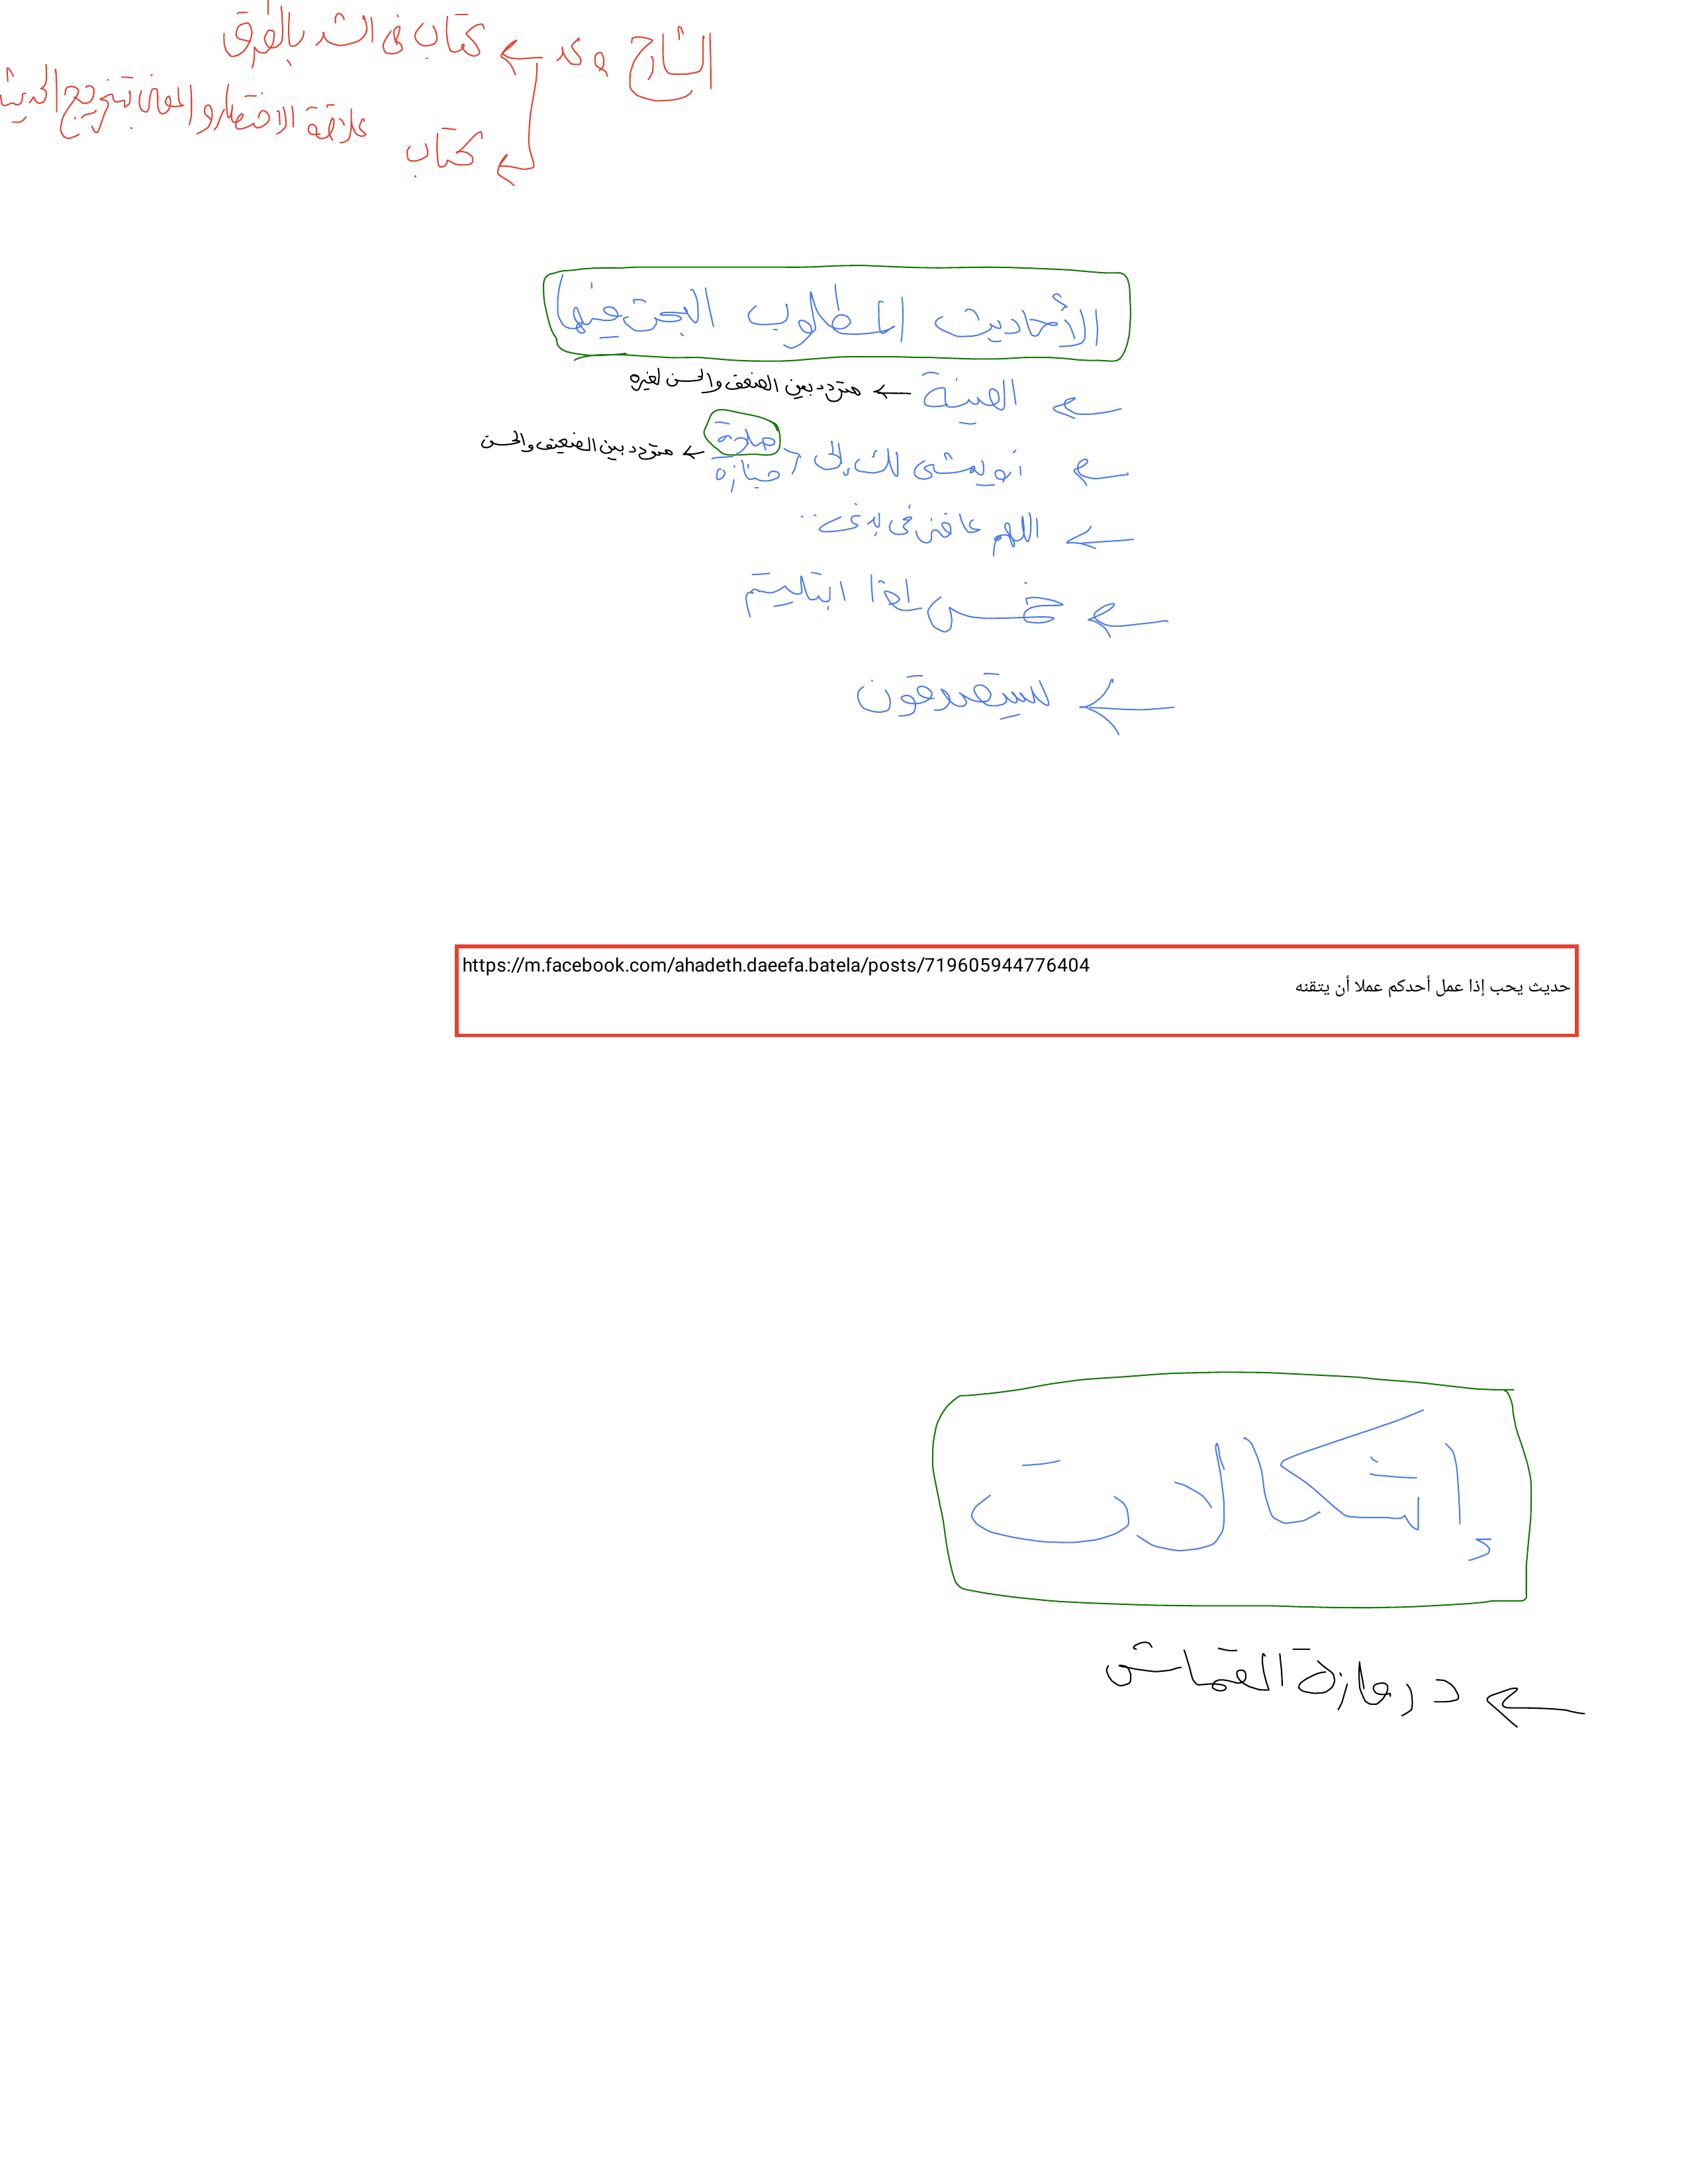 الشارح وعد ← كتاب في الشد بالفرق
← كتاب علاقة الاختصار والمعاني بتخريج الحديث
الأحاديث المطلوب البحث فيها
← العينة ← متردد بين الضعف والحسن لغيره
← أو يمشى لك إلى صلاة ← متردد بين الضعيف والحسن
جنازه
← اللهم عافنى فى بدنى ..
← خمس إذا ابتليتم
←
https://m.facebook.com/ahadeth.daeefa.batela/posts/719605944776404
حديث يحب إذا عمل أحدكم عملا أن يتقنه
إشكالات
← دروازة القماش